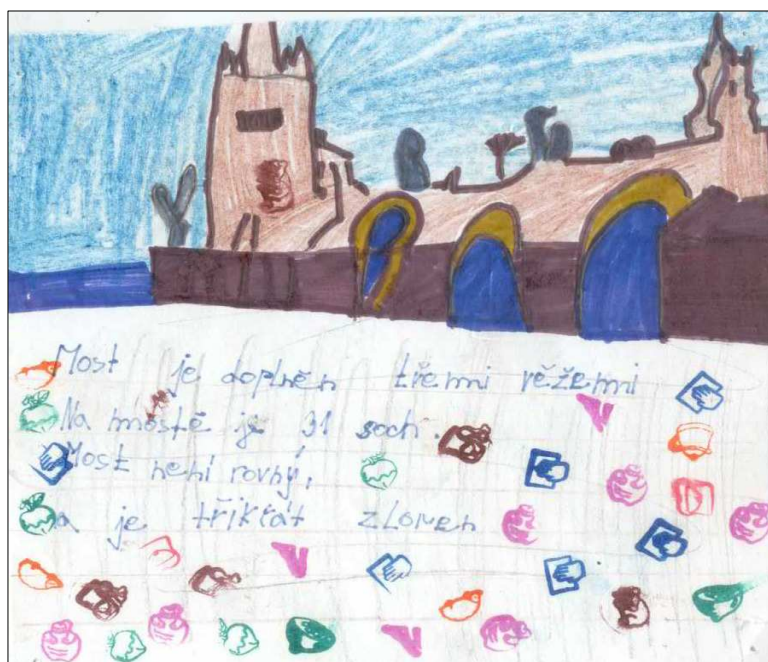 Most je doplněn třemi věžemi
Na mostě je 31 soch.
Most není rovný,
a je třikrát zlomen